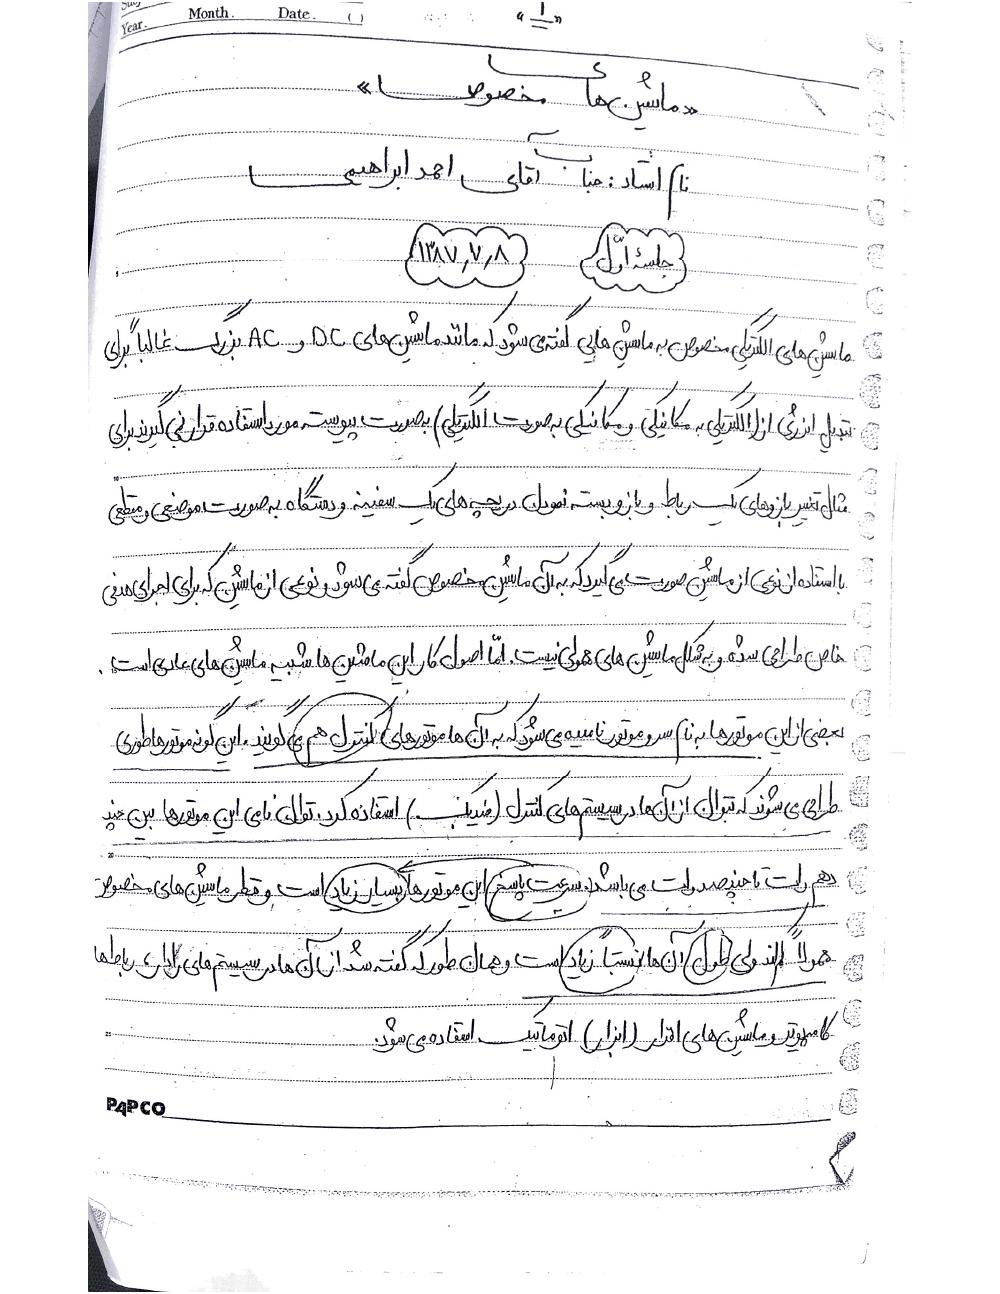 Year. Month. Date. ( )
«۱»
«ماشین های مخصوص»
نام استاد: جناب آقای احمد ابراهیمی
جلسهٔ اوّل ۱۳۸۷٫۷٫۸
ماشین های الکتریکی مخصوص به ماشین هایی گفته می شود که مانند ماشین های DC و AC بزرگ غالباً برای
تبدیل انرژی از (الکتریکی به مکانیکی و مکانیکی به صورت الکتریکی) به صورت پیوسته مورد استفاده قرار نمی گیرند برای
مثال تغییر بازوهای یک رباط و باز و بسته نمودن دریچه های یک سفینه و دستگاه به صورت موضعی و مقطعی
با استفاده از نوعی از ماشین صورت می گیرد که به آن ماشین مخصوص گفته می شود و نوعی از ماشین که برای اجرای هدفی
خاص طراحی شده و به شکل ماشین های معمولی نیست. امّا اصول کار این ماشین ها شبیه ماشین های عادی است.
بعضی از این موتورها به نام سرو موتور نامیده می شود که به آن ها موتورهای کنترل هم می گویند. این گونه موتورها طوری
طراحی می شوند که بتوان از آن ها در سیستم های کنترل (فیدبک) استفاده کرد. توان نامی این موتورها بین چند
دهم وات تا چند صد وات می باشد. سرعت پاسخ این موتورها بسیار زیاد است و قطر ماشین های مخصوص
معمولاً کم ولی طول آن ها نسبتاً زیاد است و همان طور که گفته شد از آن ها در سیستم های رادار، رباط ها
کامپیوتر و ماشین های افزار (ابزار) اتوماتیک استفاده می شود.
PAPCO